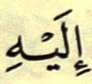 إِلَيْهِ